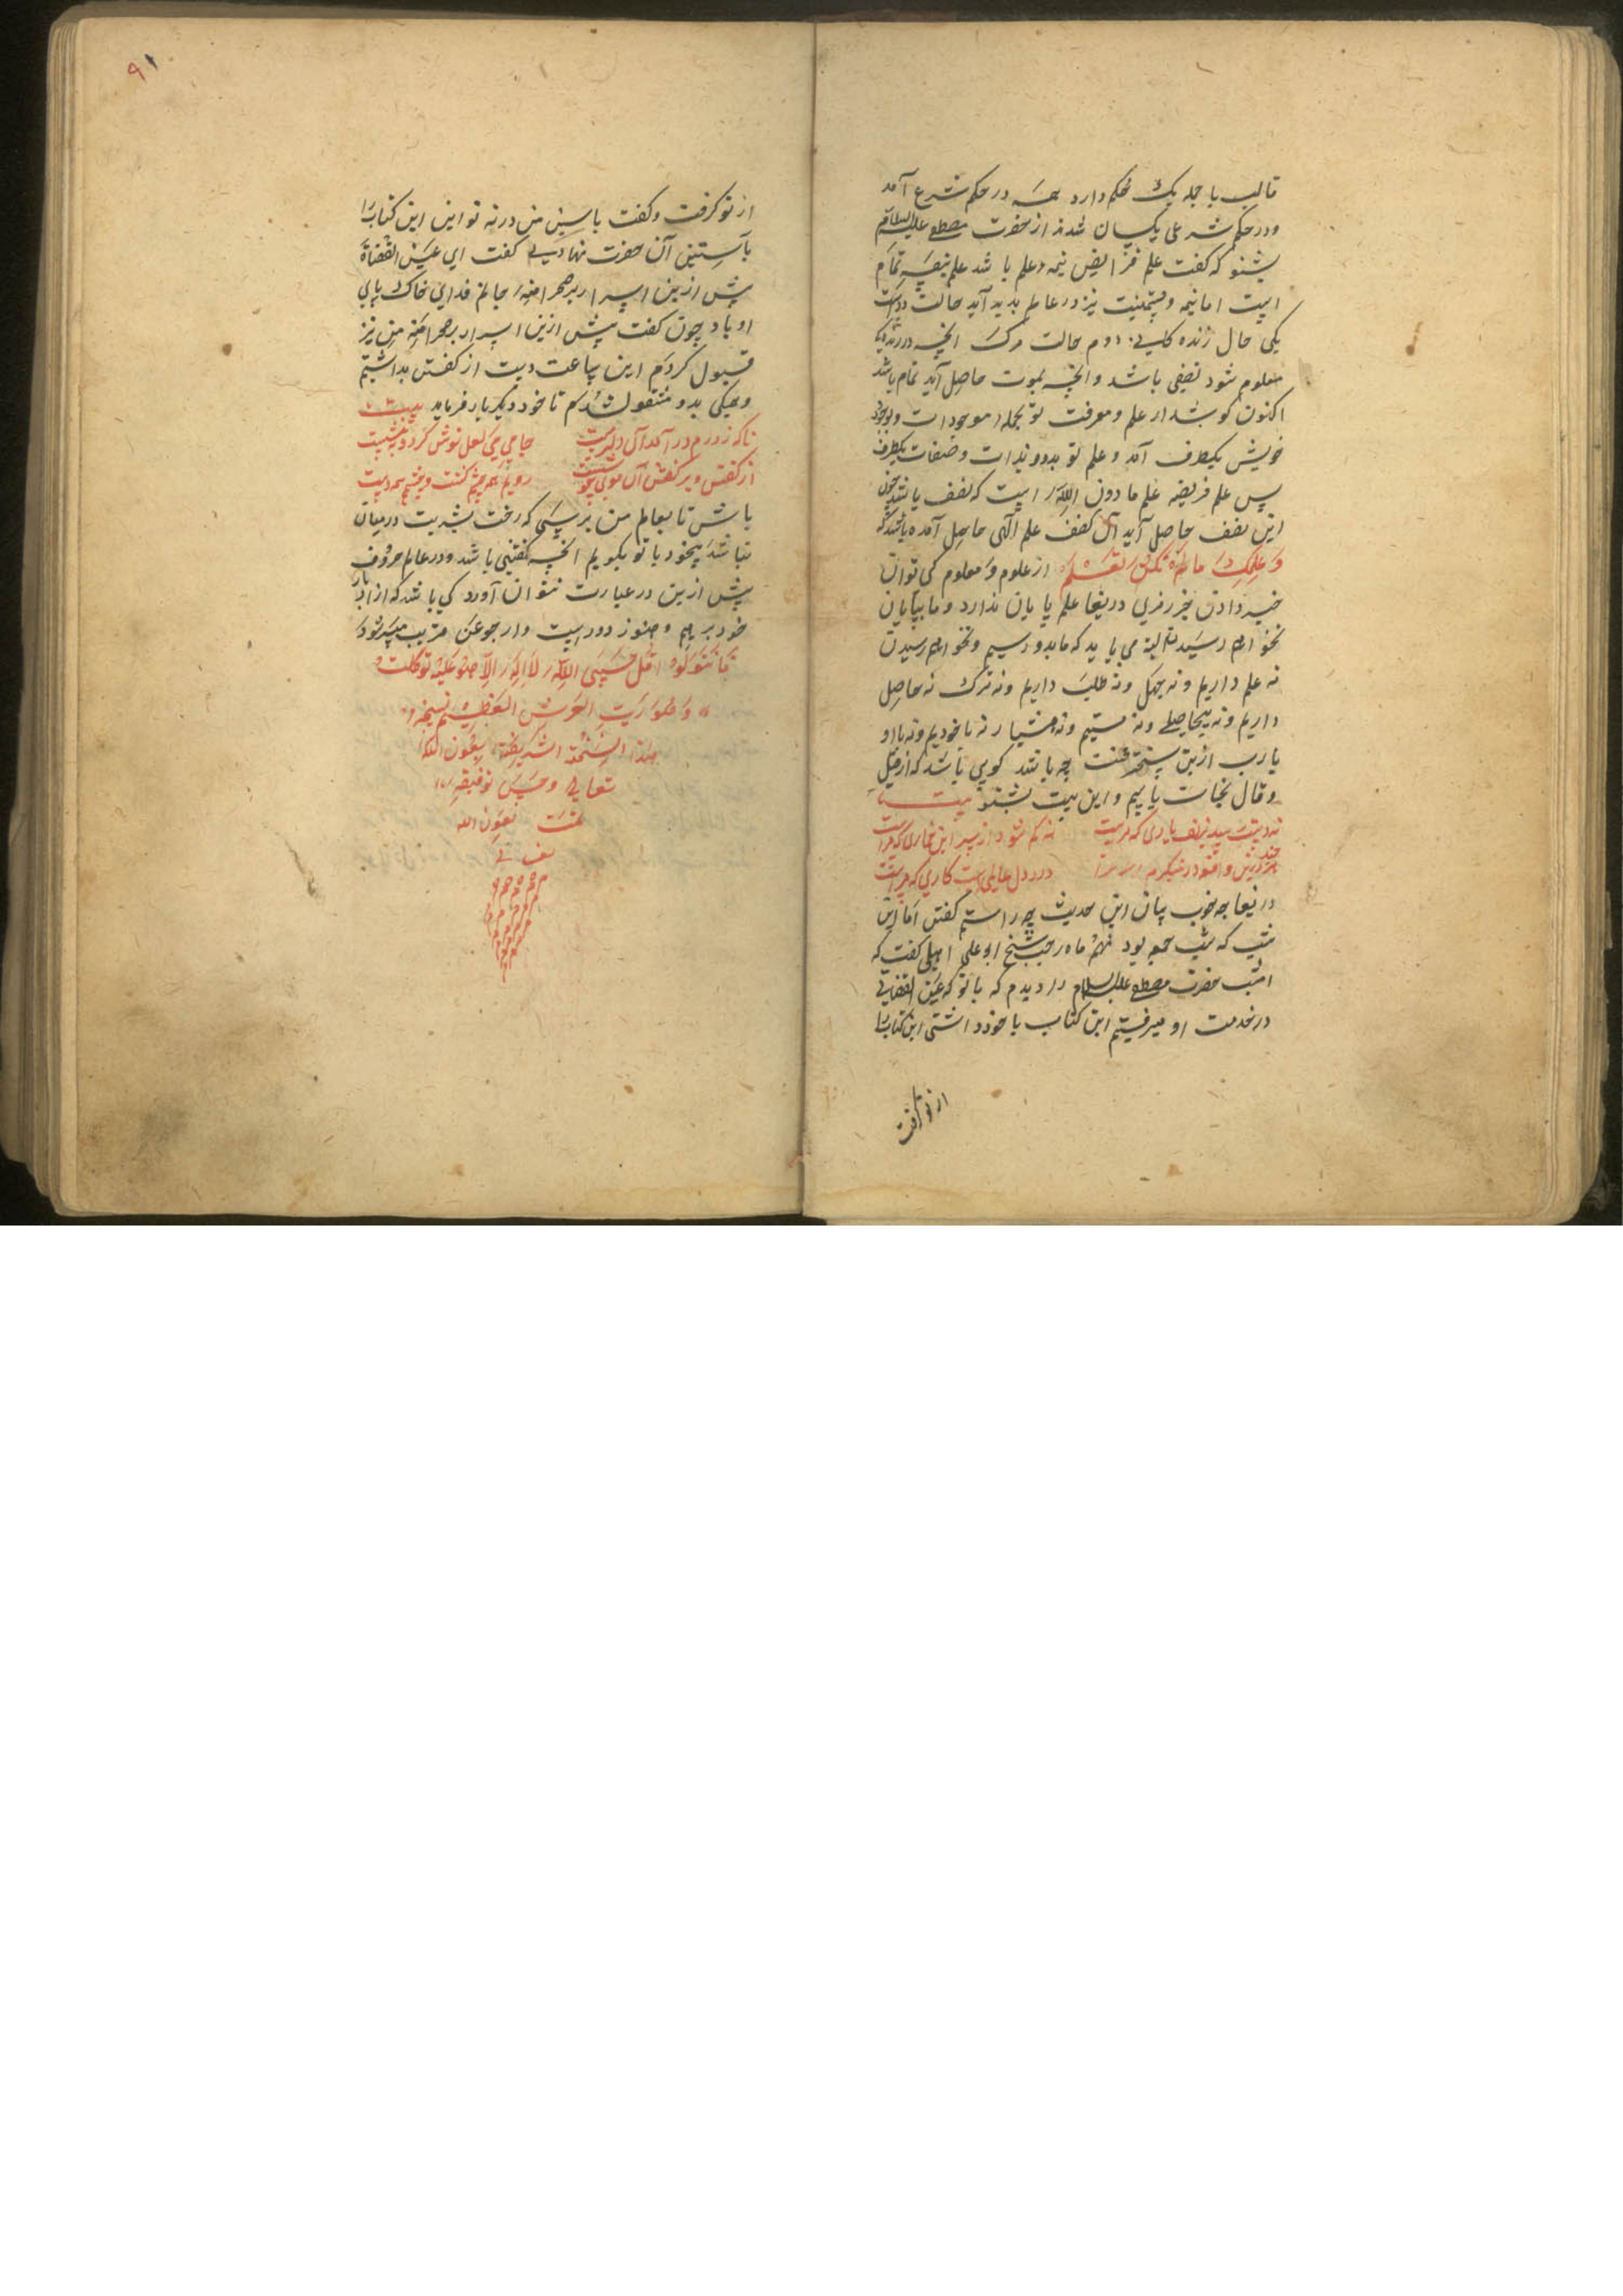 قالب با جمله یک حکم دارد همه در حکم شرع آمد
و در حکم شرعی یکسان شدند از حضرت مصطفی علیه السلام
بشنو که گفت علم فرایض نیمه علم باشد علم نیمه تمام
یکی حال زنده دوم حالت مرک آنچه در زندگی
معلوم شود نصفی باشد و آنچه بموت حاصل آید تمام باشد
اکنون گوش دار علم و معرفت تو بجمله موجودات و بوجود
خویش یکطرف آمد و علم تو بدو و بذات و صفات یکطرف
پس علم فریضه علم ما دون الله است که نصف باشد چون
این نصف حاصل آید آن نصف علم الهی حاصل آمده باشد که
وَعلمک ما لم تکن تعلم از علوم و معلوم کی توان
خبر دادن جز رمزی دریغا علم پایان ندارد و ما بپایان
نخواهم رسید البته می باید که ما بدو رسیم و نخواهم رسیدن
نه علم داریم و نه جهل و نه طلب داریم و نه ترک نه حاصل
داریم و نه بیحاصلی و نه مستیم و نه هشیار نه با خودیم و نه با او
یا رب ازین سخت‌تر محنت چه باشد کویی باشد که از قیل
و قال نجات یابیم و این بیت بشنو بیت
نه کم شود از سر این خماری که مراست
در دل عالمی است کاری که مراست
دریغا چه خوب بیان این حدیث چه راستم گفتن اما این
شب که شب جمعه بود نهم ماه رجب شیخ ابو علی املی گفت که
امشب حضرت مصطفی علیه السلام را دیدم که با تو که عین القضاتی
در خدمت او میرفتیم این کتاب با خود داشتی این کتاب را
از تو گرفت
۹۱
از تو گرفت و گفت باستین من در نه تو این این کتاب را
بآستین آن حضرت نهادی گفت ای عین القضاة
پیش ازین اسرار بر صحرا منه جانم فدای خاک پای
او باد چون گفت پیش ازین اسرار بر صحرا منه من نیز
قبول کردم این ساعت دست از گفتن بداشتیم
و همگی بدو مشغول شدم تا خود دیگر بار فرماید بیت
ناکه ز درم در آمد آن دلبر مست جامی می لعل نوش کرد و بنشست
رویم همه چشم گشت و چشمم همه دست
باش تا بعالم من برسی که زحمت بشریت در میان
نباشد بیخود با تو بکویم آنچه گفتنی باشد و در عالم حروف
پیش ازین در عبارت نتوان آورد کی باشد که از ادبار
خود برهیم و هنوز دور است و ارجو عن قریب میسر شود
فان تولوا فقل حسبی الله لا اله الا هو علیه توکلت
و هو رب العرش العظیم
هذا النسخة الشریفة بعون الله
تعالی و حسن توفیقه
تمت بعون الله